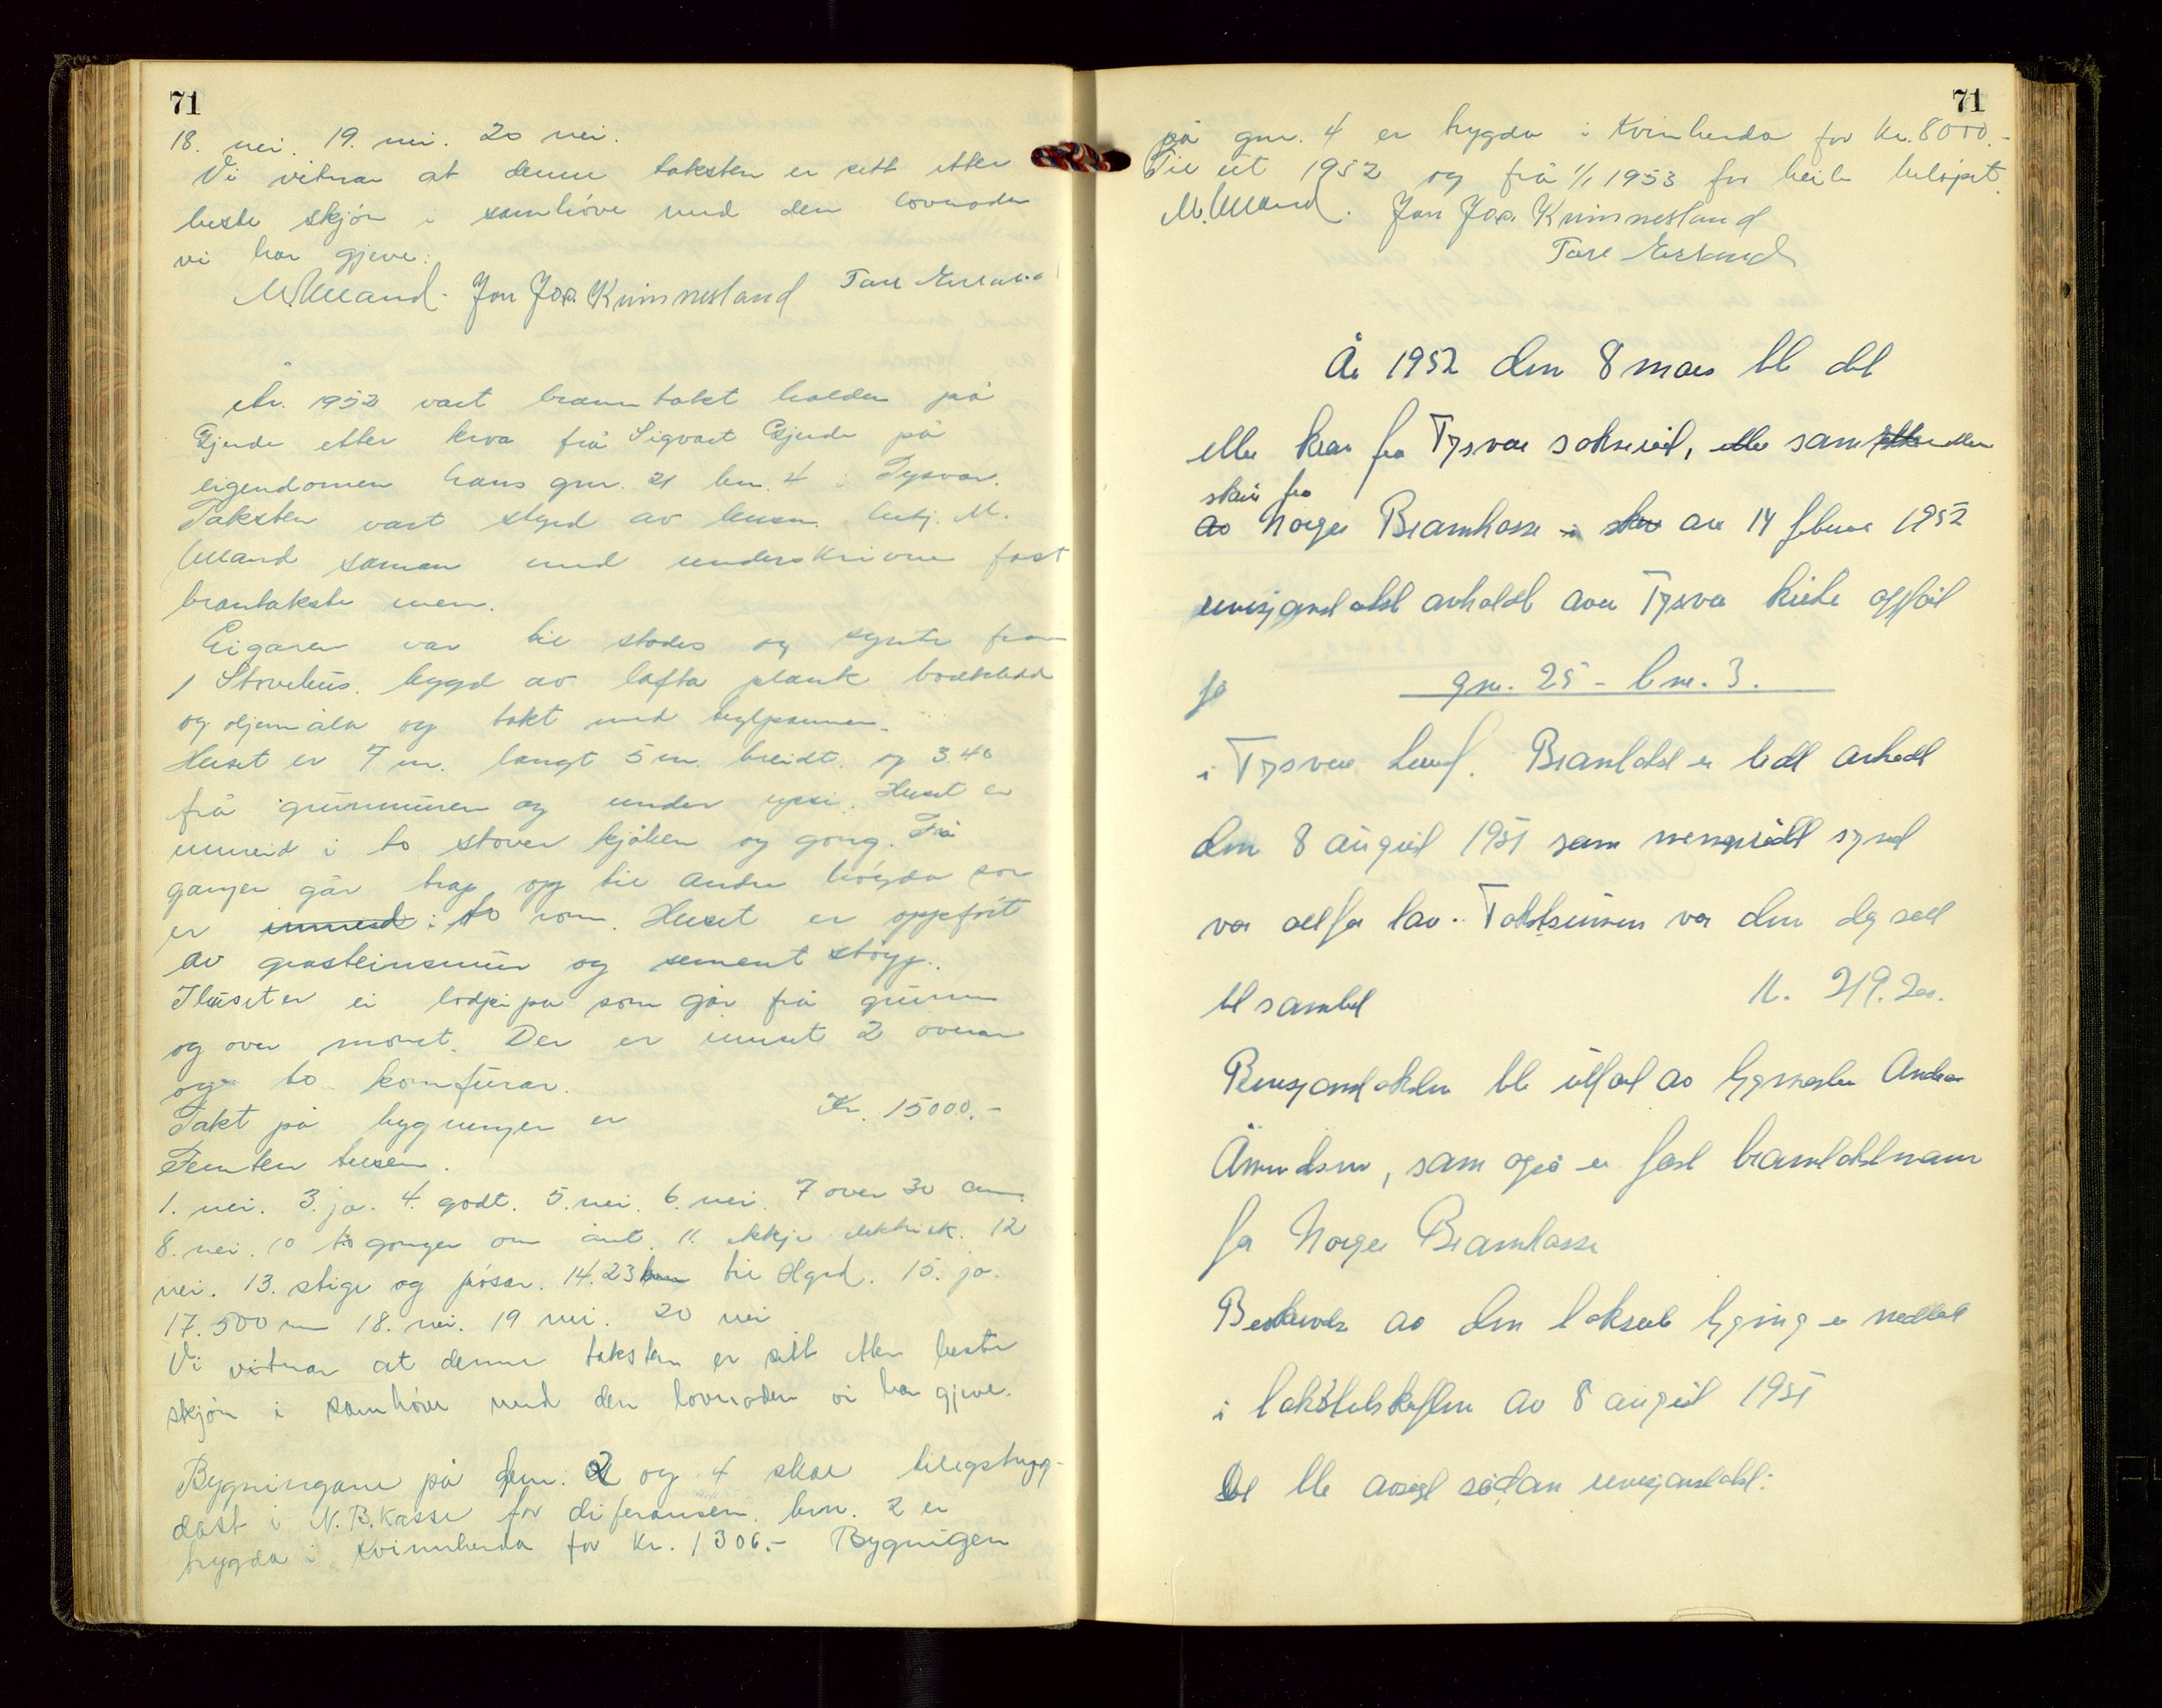 71
18. nei. 19. nei. 20 nei.
Vi vitnar at denne taksten er sett etter
beste skjön i samhöve med den lovnaden
vi har gjeve.
M. Uelland. Jon Jos. Kvinnesland Tore Erland
År. 1952 vart branntakt halden på
Gjerde etter krva frå Sigvart Gjerde på
eigendomen hans gnr. 21 bn. 4 i Tysvær.
Taksten vart styrd av lensm. betj. M.
Uelland saman med underskrivne fast
brantakste menn.
Eigaren var til stades og synte fram
1 Stovehus. bygd av lafta plank bordkledd
og oljemåla og tekt med teglpanner.
Huset er 7 m. langt 5 m. breidt. og 3.40
frå grunnmuren og under upsi. Huset er
innreid i to stover kjöken og gong. Frå
gangen går trap opp til andre högda som
er innreid i to rom. Huset er oppfört
av grasteinsmur og sement stöyp.
I huset er ei lodpipa som går frå grunn
og over mönet. Der er innset 2 ovnar
og to komfurar.
Takt på bygningen er Kr. 15000.-
Femten tusen.
1. nei. 3. ja. 4. godt. 5. nei. 6. nei. 7 over 30 cm.
8. nei. 10 to gonger om året. 11. ikkje elektrisk. 12
nei. 13. stige og pösar. 14. 23 km til Hgsd. 15. ja.
17. 500 m 18. nei. 19 nei. 20 nei
Vi vitnar at denne taksten er sett etter beste
skjön i samhöve med den lovnaden vi har gjeve.
Bygningane på bnr. 2 og 4 skal tileggstrygg-
dast i N.B.kasse for diferansen. bnr. 2 er
trygda i Kvinnherda for Kr. 1306.- Bygnigen
71
på gnr. 4 er trygda i Kvinherda for Kr. 8000.-
Til ut 1952 og frå 1/1 1953 for heile belöpet.
M. Uelland. Jon Jos. Kvinnesland
Tore Erland
År 1952 den 8 mars ble det
etter krav fra Tysvær sokneråd, etter samr etter
skriv fra
av Norges Brannkasse i skr av 14 februar 1952
revisjonstakst avholdt over Tysvær kirke oppfört
på gnr. 25 - bnr. 3.
i Tysvær herred. Branntakst er sist avholdt
den 8 august 1951 som menighetsrådet synes
var alt for lav. Takstsummen var den dag satt
til samlet kr. 219.200.
Revisjonstaksten ble utfört av byggmester Andreas
Åmundsen, som også er fast branntakstmann
for Norges Brannkasse
Beskrivelse av den takserte bygning er nedlagt
i takstbeskriften av 8 august 1951
Det ble avsagt sådan revisjonstakst: